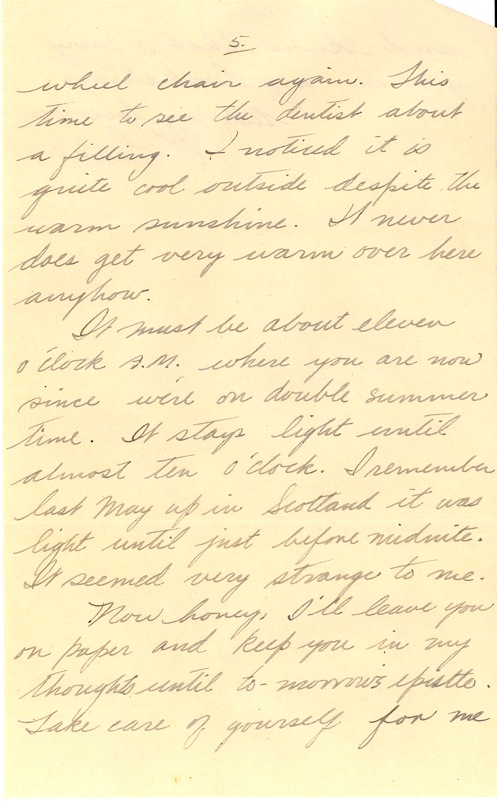 5.
wheel chair again. This
time to see the dentist about
a filling. I noticed it is
quite cool outside despite the
warm sunshine. It never
does get very warm over here
anyhow.
It must be about eleven
o'clock A.M. where you are now
since we're on double summer
time. It stays light until
almost ten o'clock. I remember
last May up in Scotland it was
light until just before midnite.
It seemed very strange to me.
Now honey, I'll leave you
on paper and keep you in my
thoughts until to-morrow's epistle.
Take care of yourself for me